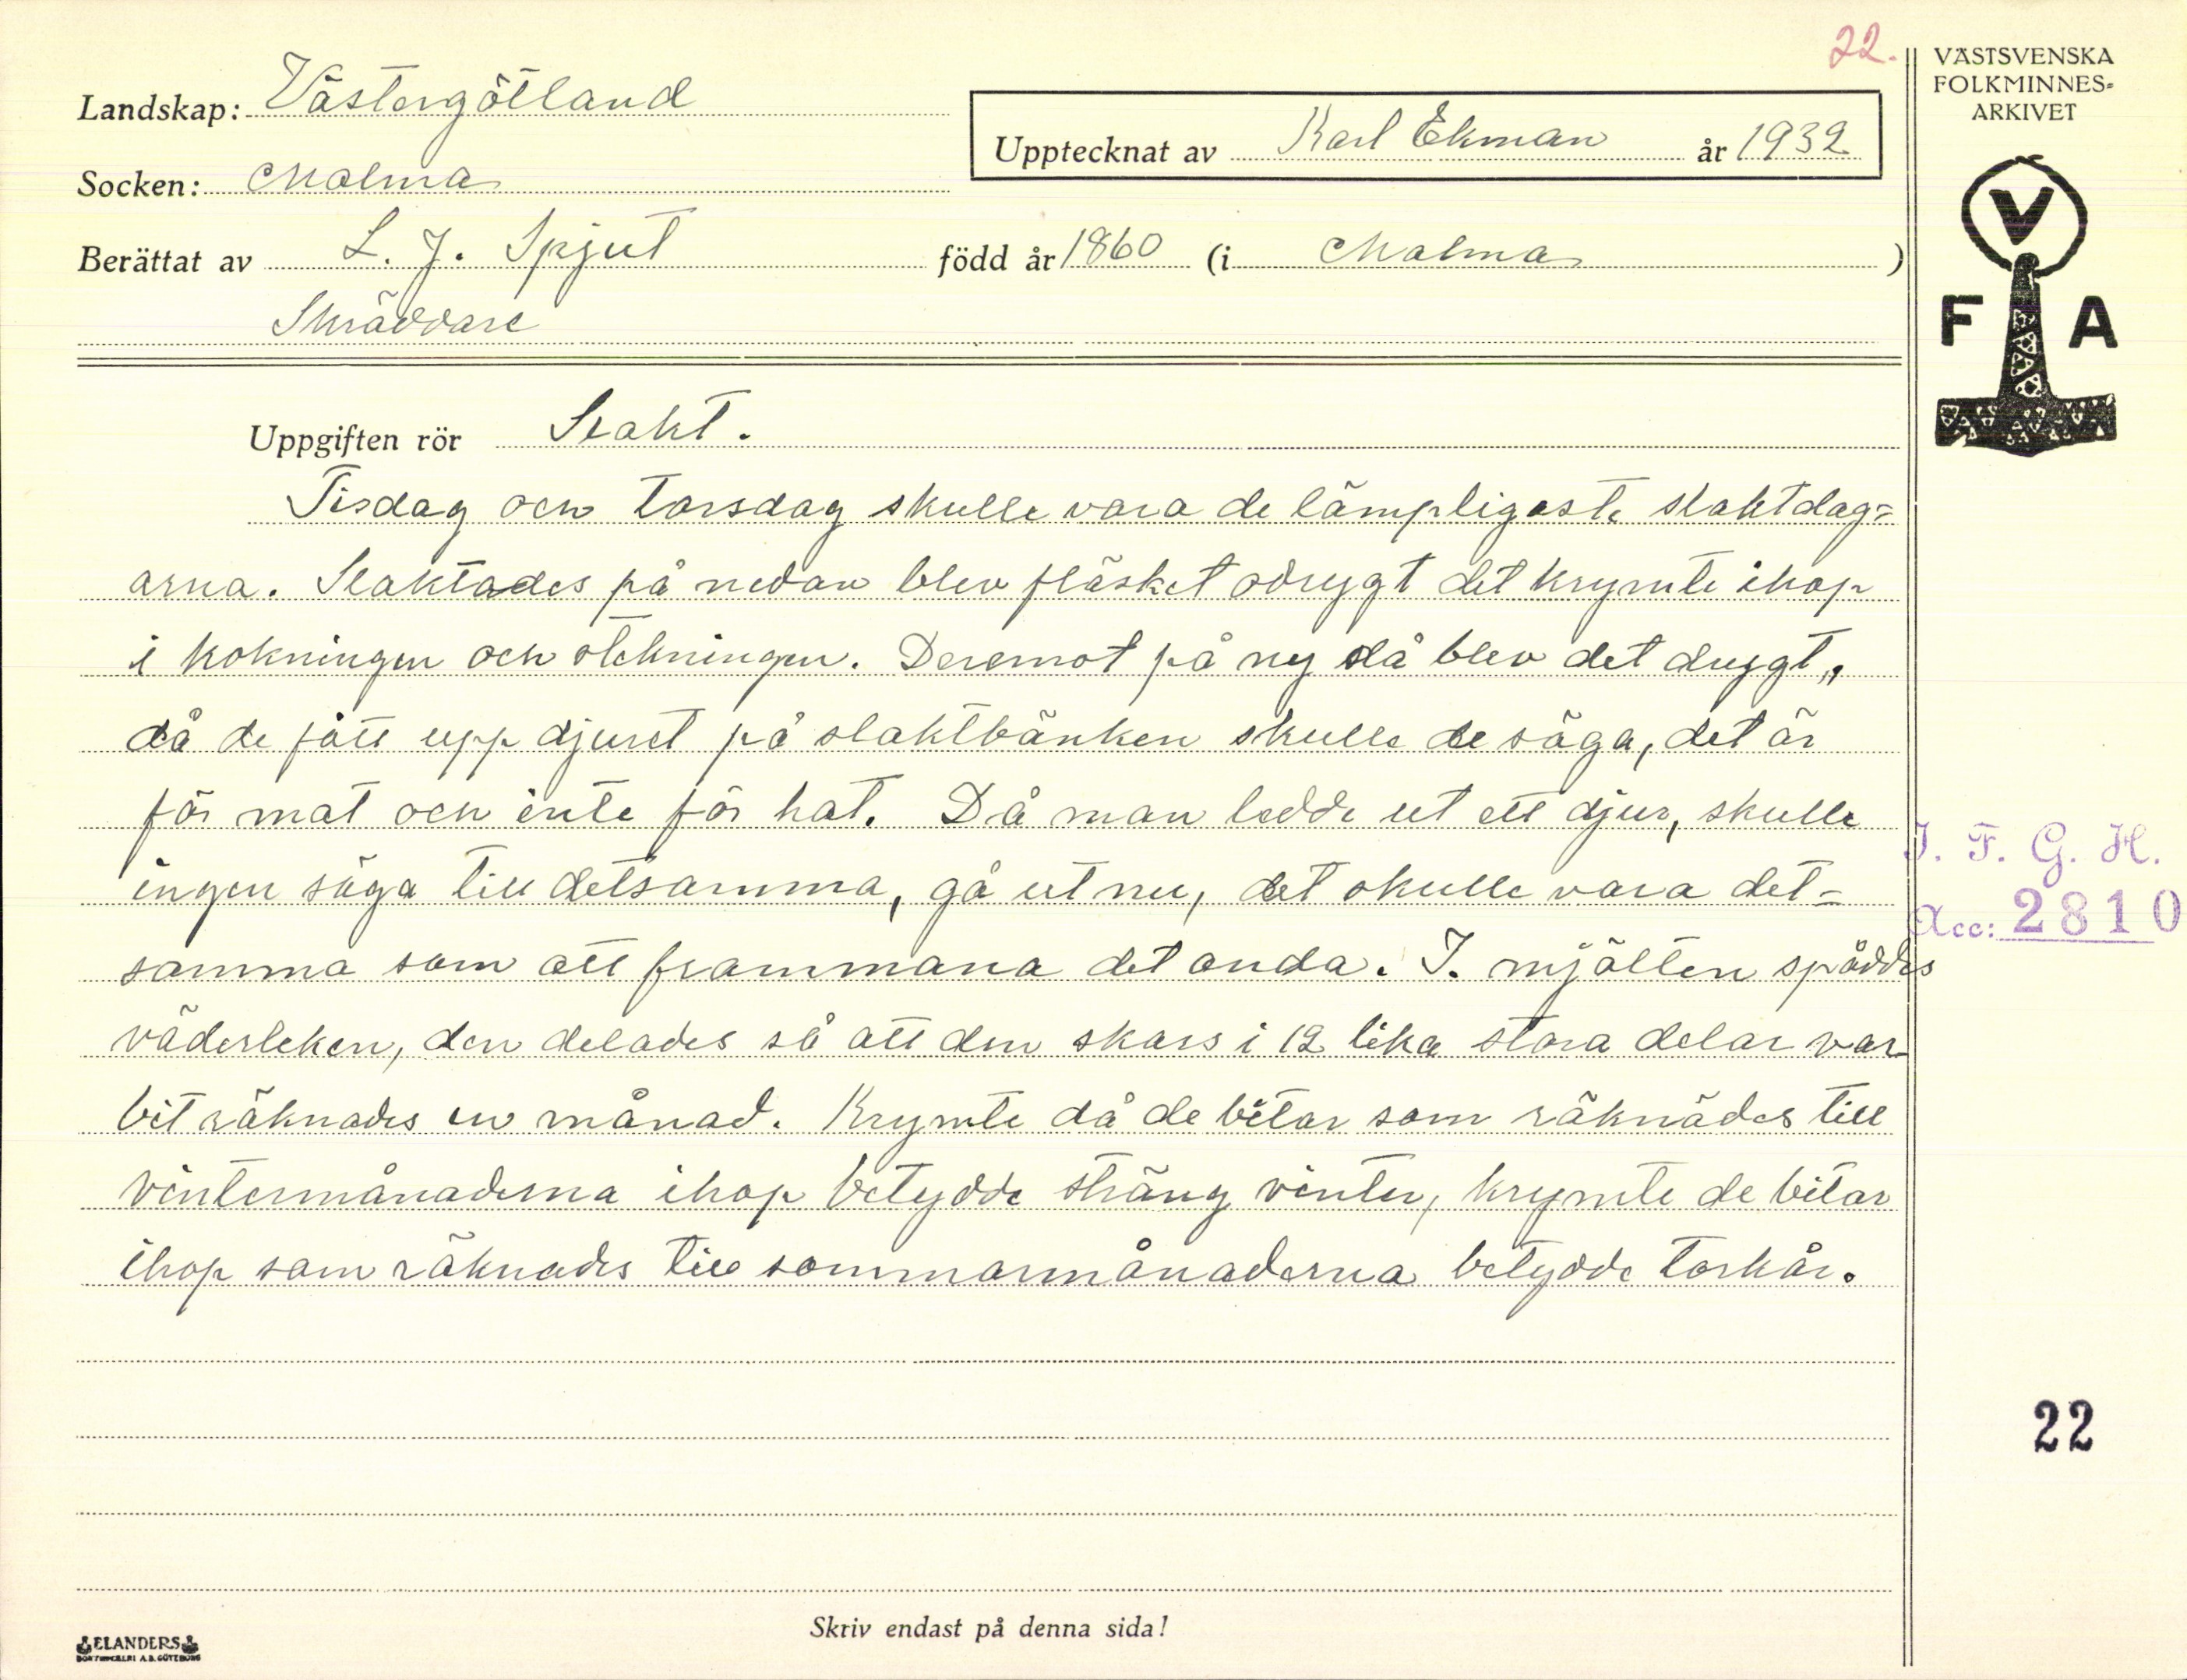 22.
VÄSTSVENSKA
FOLKMINNES-
ARKIVET
Landskap: Västergötland
Upptecknat av Karl Ekman år 1932
Socken: Malma
Berättat av L. J. Spjut född år 1860 (i Malma)
Skräddare
V
F A
Uppgiften rör Slakt.
Tisdag och torsdag skulle vara de lämpligaste slaktdag=
arna. Slaktades på nedan blev fläsket odrygt det krymte ihop
i kokningen och stekningen. Deremot på ny då blev det drygt,,
då de fått upp djuret på slaktbänken skulle de säga, det är
för mat och inte för hat. Då man ledde ut ett djur, skulle
ingen säga till detsamma, gå ut nu, det skulle vara det=
samma som att frammana det onda. I. mjälten spåddes
väderleken, den delades så att den skars i 12 lika stora delar var
bit räknades en månad. Krymte då de bitar som räknades till
vintermånaderna ihop betydde sträng vinter, krymte de bitar
ihop som räknades till sommarmånaderna betydde torkår.
I. F. G. H.
Acc: 2810
22
Skriv endast på denna sida!
ELANDERS
BOKTRYCKERI A.B. GÖTEBORG